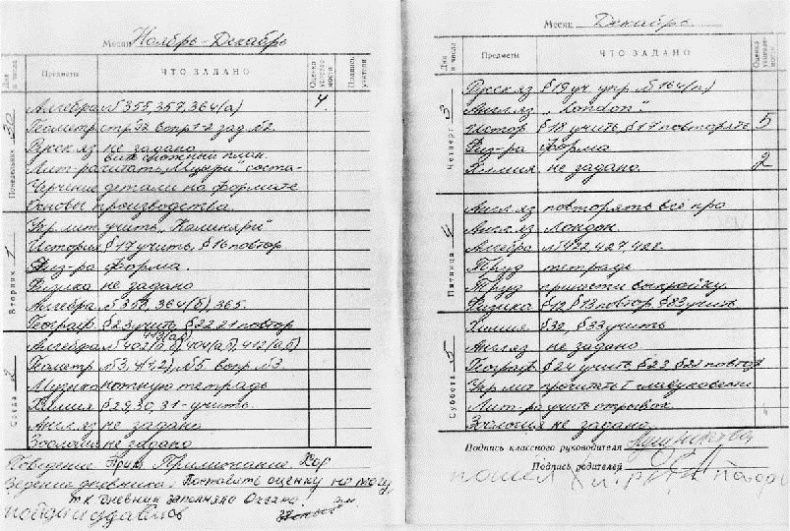 Месяц Ноябрь-Декабрь
Дни и числа Предметы ЧТО ЗАДАНО Оценка Подпись учителя
Понедельник 30
Алгебра №355,357,364(а) 4
Геометр стр
Русск яз не задано
Лит-ра читать „Мцыри" соста-
вить сложный план.
Черчение детали на формате
Основы производства
Вторник 1
Укр. лит учить „Каменяри"
История §17 учить, §16 повтор
Физ-ра форма.
Физика не задано
Алгебра №358, 364(б), 365.
Географ §23 учить §22 21 повтор
Среда 2
Алгебра №402(а,б), 404(а,б), 412(а,б)
Геометр №3, №5 вопр. №3
Музыка нотную тетрадь
Химия §29,30,31-учить.
Англ яз не задано
Зоология не задано
Поведение Прим Примечание: Хор
Ведение дневника: Поставить оценку не могу,
т.к дневник заполняла Оксана!
Месяц Декабрь
Дни и числа Предметы ЧТО ЗАДАНО Оценка
Четверг 3
Русск яз §19 уч. упр. №164(п)
Англ яз „London".
Истор §18 учить, §17 повторять 5
Физ-ра форма
Химия не задано. 2
Пятница 4
Англ яз повторять всё про
Англ яз Лондон.
Алгебра №422,427,428.
Труд тетрадь
Труд принести выкройку.
Физика §12 §13 повтор §83 учить
Химия §32, §33 учить
Суббота 5
Англ яз не задано
Географ §24 учить §23 §22 повтор
Укр лит прочитать
Лит-ра учить отрывок.
Зоология не задано
Подпись классного руководителя
Подпись родителей
пошёл